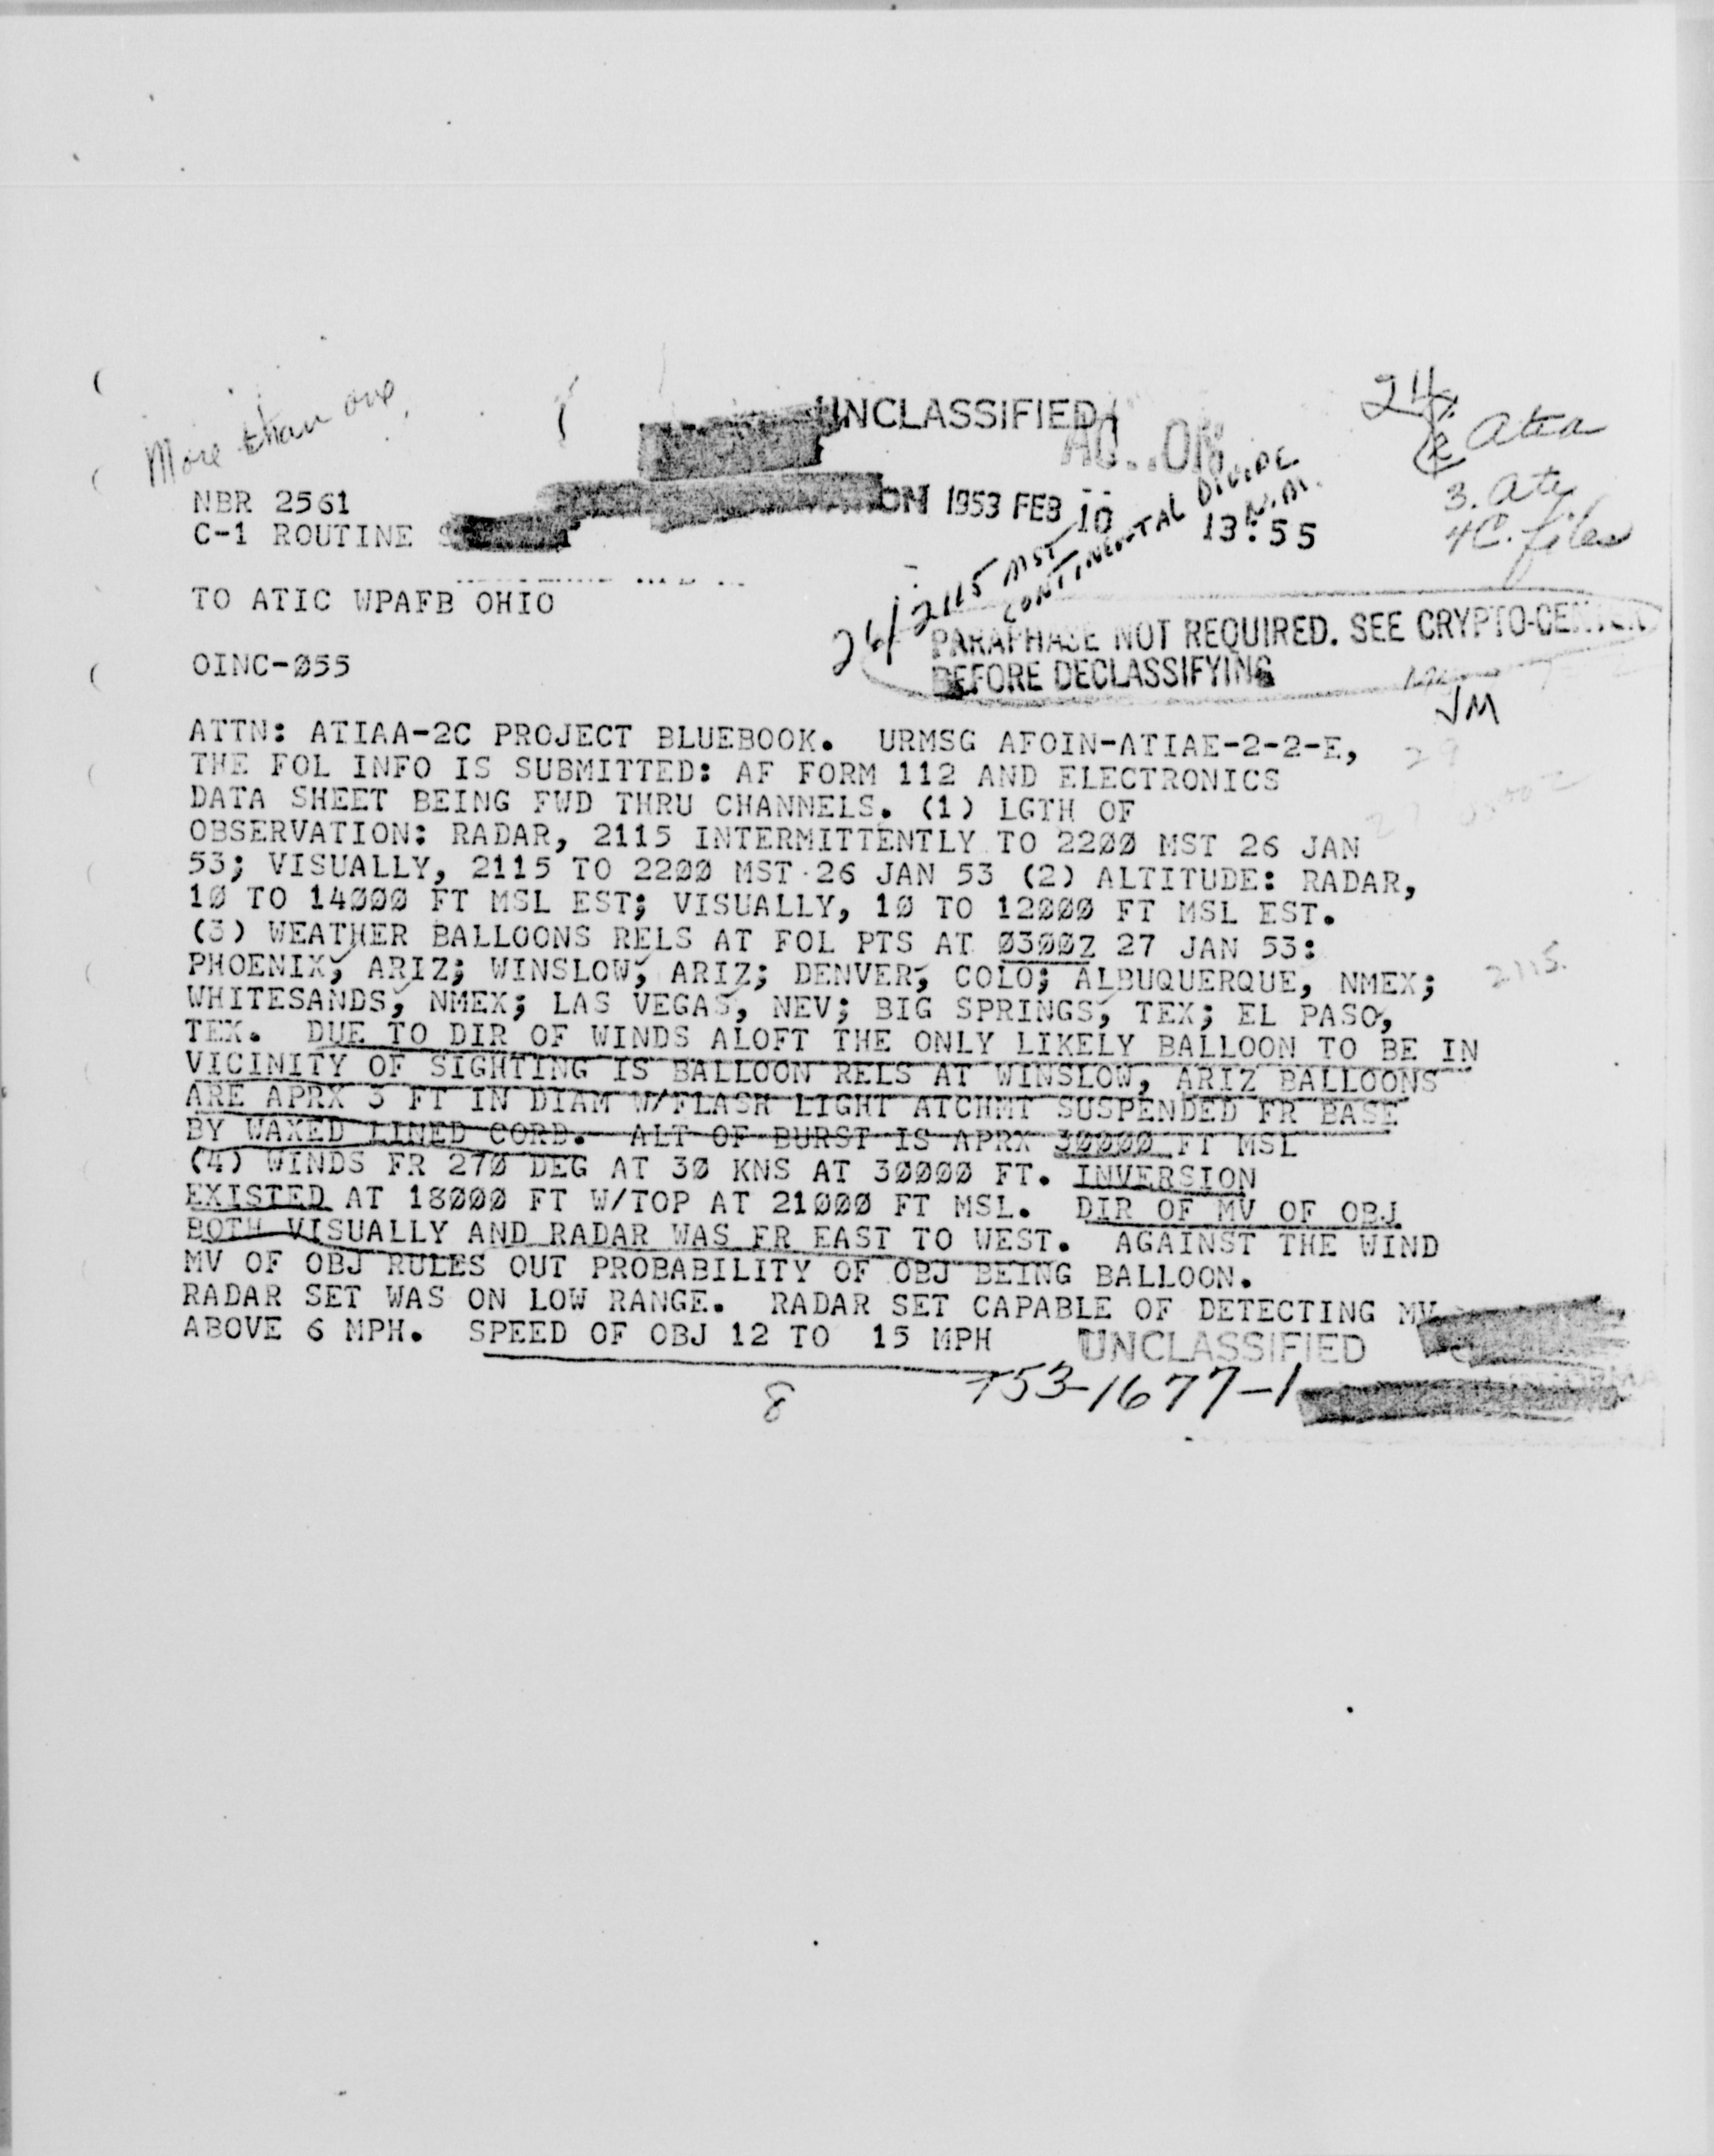 More than one
UNCLASSIFIED
24
Atia
3. Ati
4C. files
NBR 2561
ON 1953 FEB 10 13:55
C-1 ROUTINE
26/2115 MST
CONTINENTAL DIVIDE
N.M.
TO ATIC WPAFB OHIO
PARAPHASE NOT REQUIRED. SEE CRYPTO-CENTER
BEFORE DECLASSIFYING
OINC-Ø55
JM
ATTN: ATIAA-2C PROJECT BLUEBOOK. URMSG AFOIN-ATIAE-2-2-E,
THE FOL INFO IS SUBMITTED: AF FORM 112 AND ELECTRONICS
DATA SHEET BEING FWD THRU CHANNELS. (1) LGTH OF
OBSERVATION: RADAR, 2115 INTERMITTENTLY TO 22ØØ MST 26 JAN
53; VISUALLY, 2115 TO 22ØØ MST 26 JAN 53 (2) ALTITUDE: RADAR,
1Ø TO 14ØØØ FT MSL EST; VISUALLY, 1Ø TO 12ØØØ FT MSL EST.
(3) WEATHER BALLOONS RELS AT FOL PTS AT Ø3ØØZ 27 JAN 53:
PHOENIX, ARIZ; WINSLOW, ARIZ; DENVER, COLO; ALBUQUERQUE, NMEX;
2115.
WHITESANDS, NMEX; LAS VEGAS, NEV; BIG SPRINGS, TEX; EL PASO,
TEX. DUE TO DIR OF WINDS ALOFT THE ONLY LIKELY BALLOON TO BE IN
VICINITY OF SIGHTING IS BALLOON RELS AT WINSLOW, ARIZ BALLOONS
ARE APRX 3 FT IN DIAM W/FLASH LIGHT ATCHMT SUSPENDED FR BASE
BY WAXED LINED CORD. ALT OF BURST IS APRX 3ØØØØ FT MSL
(4) WINDS FR 27Ø DEG AT 3Ø KNS AT 3ØØØØ FT. INVERSION
EXISTED AT 18ØØØ FT W/TOP AT 21ØØØ FT MSL. DIR OF MV OF OBJ
BOTH VISUALLY AND RADAR WAS FR EAST TO WEST. AGAINST THE WIND
MV OF OBJ RULES OUT PROBABILITY OF OBJ BEING BALLOON.
RADAR SET WAS ON LOW RANGE. RADAR SET CAPABLE OF DETECTING MV
ABOVE 6 MPH. SPEED OF OBJ 12 TO 15 MPH
UNCLASSIFIED
8
T53-1677-1